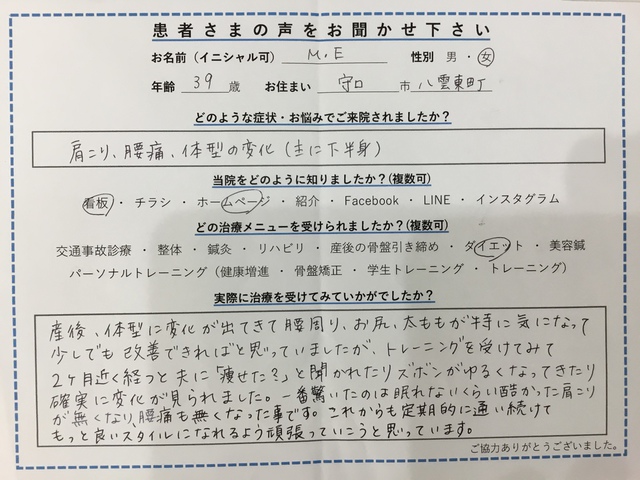 患者さまの声をお聞かせ下さい
お名前(イニシャル可) M.E 性別 男・女
年齢 39 歳 お住まい 守口 市 八雲東町
どのような症状・お悩みでご来院されましたか？
肩こり、腰痛、体型の変化(主に下半身)
当院をどのように知りましたか？(複数可)
看板・チラシ・ホームページ・紹介・Facebook・LINE・インスタグラム
どの治療メニューを受けられましたか？(複数可)
交通事故診療・整体・鍼灸・リハビリ・産後の骨盤引き締め・ダイエット・美容鍼
パーソナルトレーニング(健康増進・骨盤矯正・学生トレーニング・トレーニング)
実際に治療を受けてみていかがでしたか？
産後、体型に変化が出てきて腰周り、お尻、太ももが特に気になって
少しでも改善できればと思っていましたが、トレーニングを受けてみて
2ヶ月近く経つと夫に「痩せた？」と聞かれたりズボンがゆるくなってきたり
確実に変化が見られました。一番驚いたのは眠れないくらい酷かった肩こり
が無くなり、腰痛も無くなった事です。これからも定期的に通い続けて
もっと良いスタイルになれるよう頑張っていこうと思っています。
ご協力ありがとうございました。